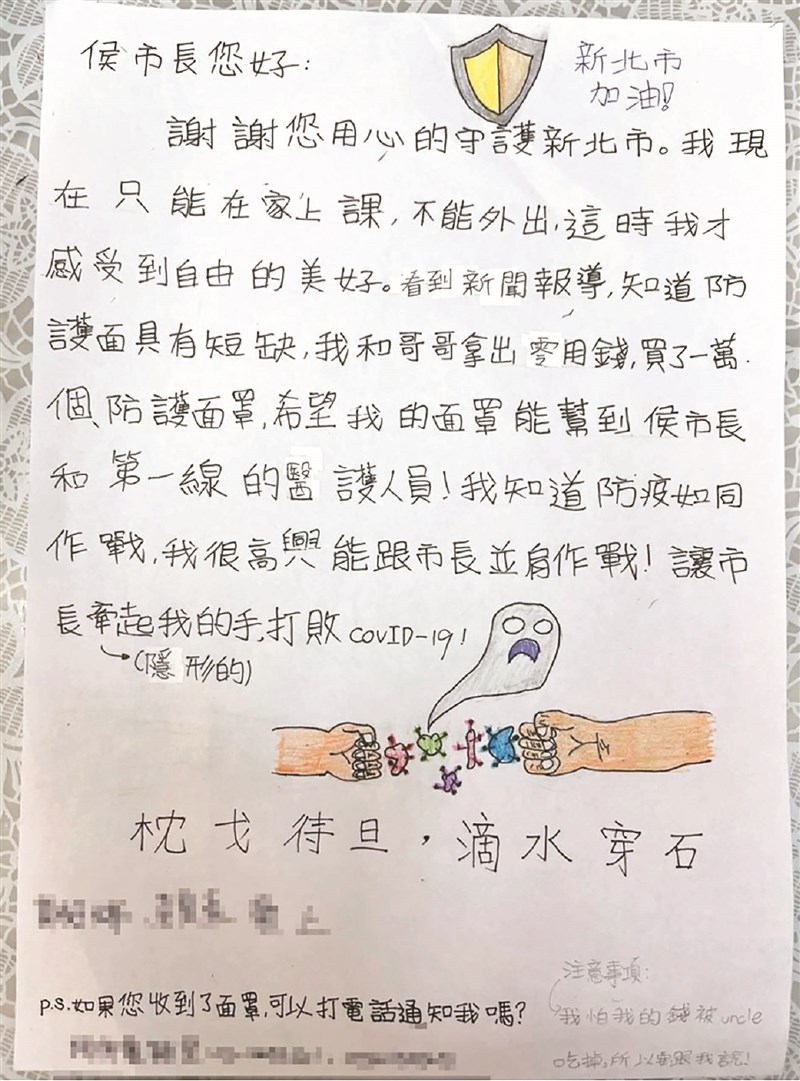 侯市長您好:
新北市
加油!
謝謝您用心的守護新北市。我現
在只能在家上課,不能外出,這時我才
感受到自由的美好。看到新聞報導,知道防
護面具有短缺,我和哥哥拿出零用錢,買了一萬
個防護面罩,希望我的面罩能幫到侯市長
和第一線的醫護人員!我知道防疫如同
作戰,我很高興能跟市長並肩作戰!讓市
長牽起我的手,打敗COVID-19!
(隱形的)
枕戈待旦,滴水穿石
上
p.s.如果您收到了面罩,可以打電話通知我嗎?
注意事項:
我怕我的錢被uncle
吃掉,所以要跟我說!